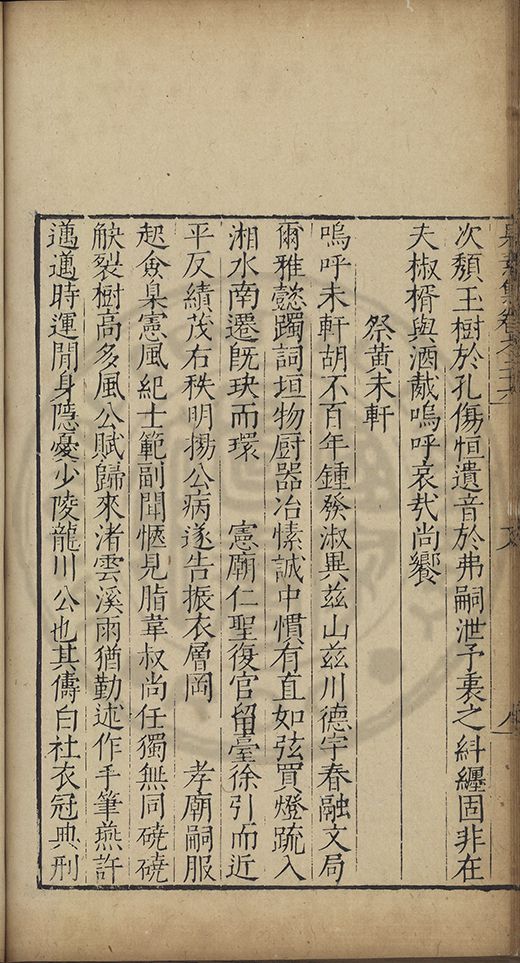 次頹玉樹於孔傷恒遺音於弗嗣泄予衷之糾纏固非在
夫椒楈與酒胾嗚呼哀㢤尚饗
祭黃未軒
嗚呼未軒胡不百年鍾發淑異兹山兹川德宇春融文局
爾雅懿躅詞垣物厨器冶愫誠中慣有直如弦買燈疏入
湘水南遷旣玦而環　憲廟仁聖復官留臺徐引而近
平反績茂右秩明揚公病遂告振衣層岡　孝廟嗣服
起僉臬憲風紀士範副聞愜見脂韋叔尚任獨無同磽磽
觖裂樹高多風公賦歸來渚雲溪雨猶勤述作手筆燕許
邁邁時運閒身隱憂少陵龍川公也其儔白社衣冠典刑